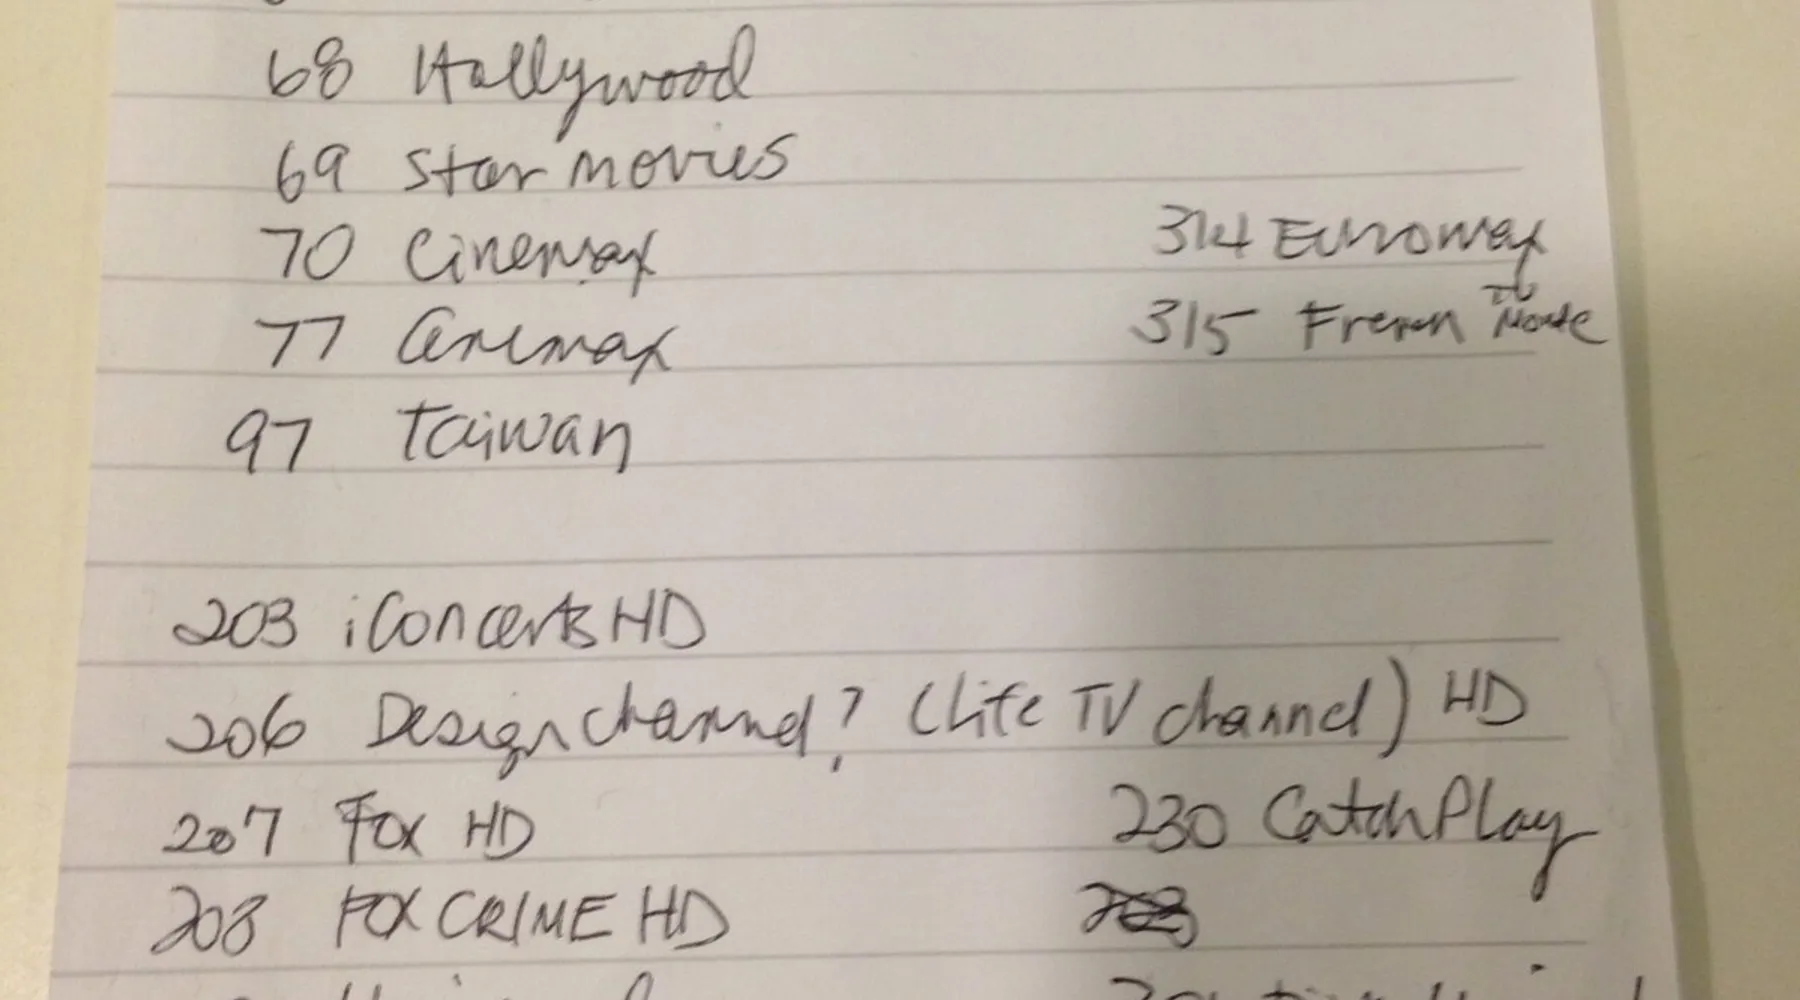 68 Hollywood
69 Star movies
70 Cinemax
77 Cinemax
97 Taiwan
314 Euromax
315 French to Movie
203 iConcerts HD
206 Design channel? (Life TV channel) HD
207 Fox HD
208 FOX CRIME HD
230 CatchPlay